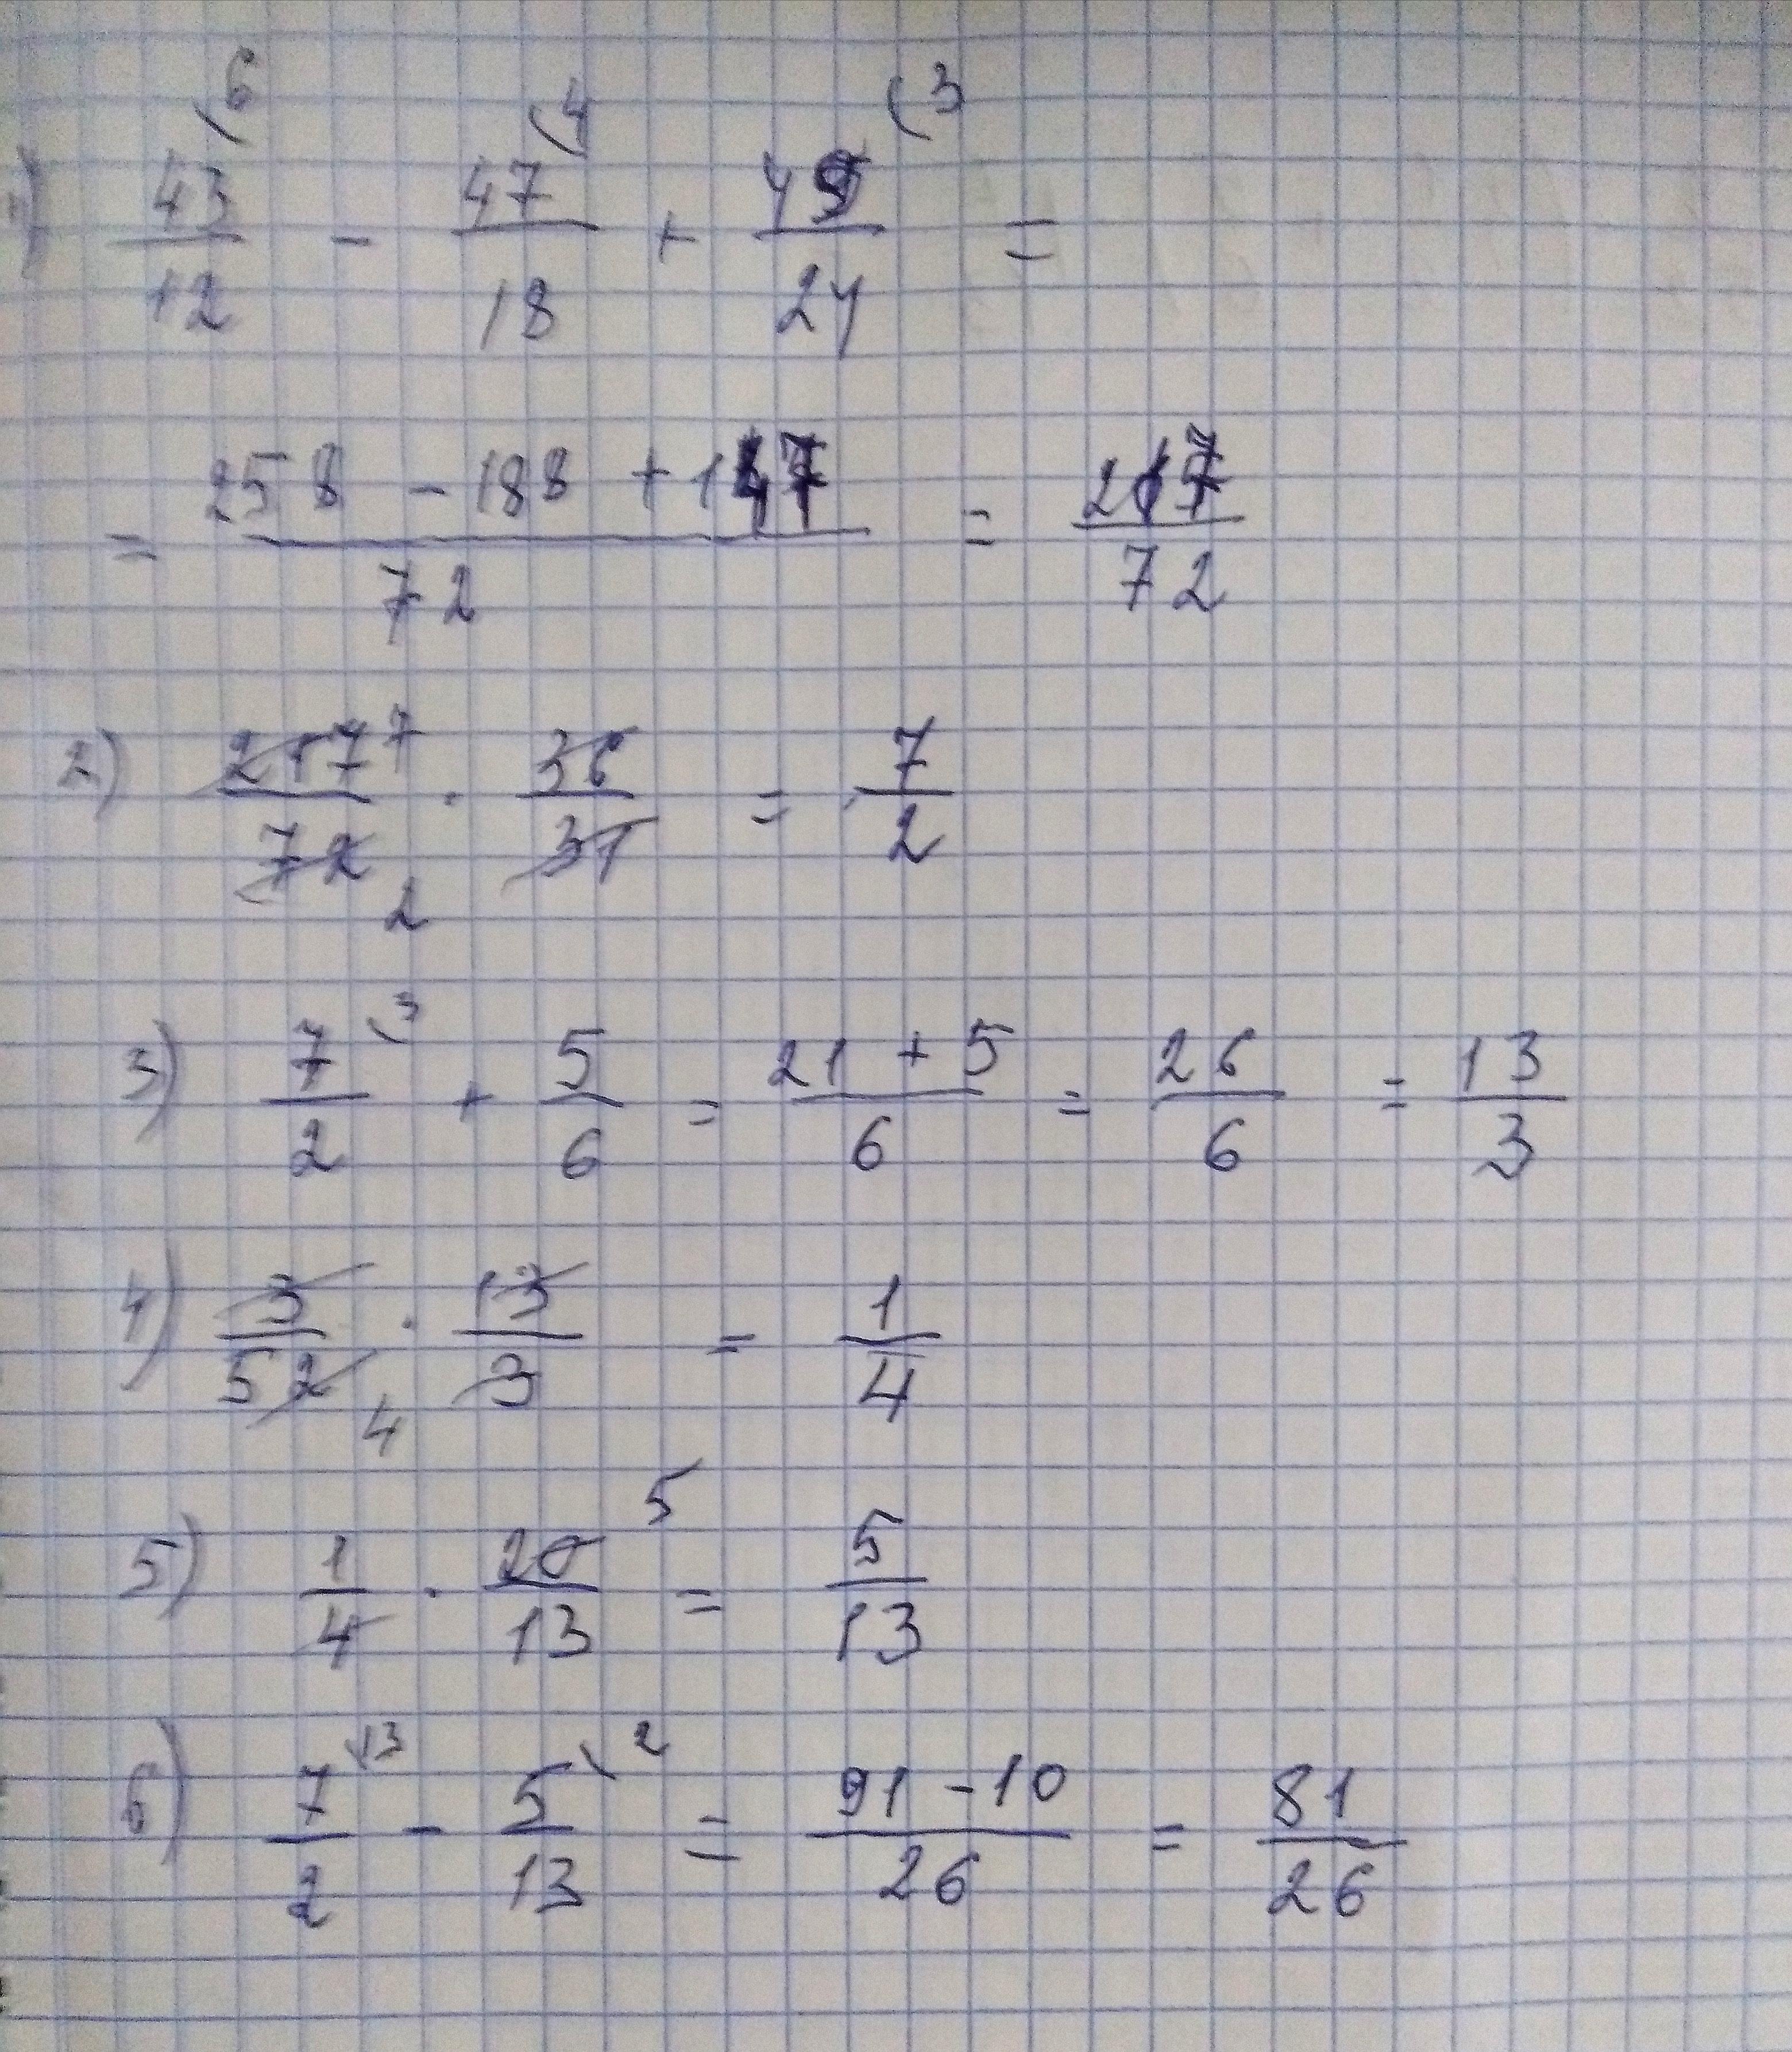 1) 43/12 \6 - 47/18 \4 + 49/24 \3 =
= (258 - 188 + 147)/72 = 217/72
2) 217/72 · 36/31 = 7/2
7 2
3) 7/2 \3 + 5/6 = (21 + 5)/6 = 26/6 = 13/3
4) 3/52 · 13/3 = 1/4
4
5) 1/4 · 20/13 = 5/13
5
6) 7/2 \13 - 5/13 \2 = (91 - 10)/26 = 81/26